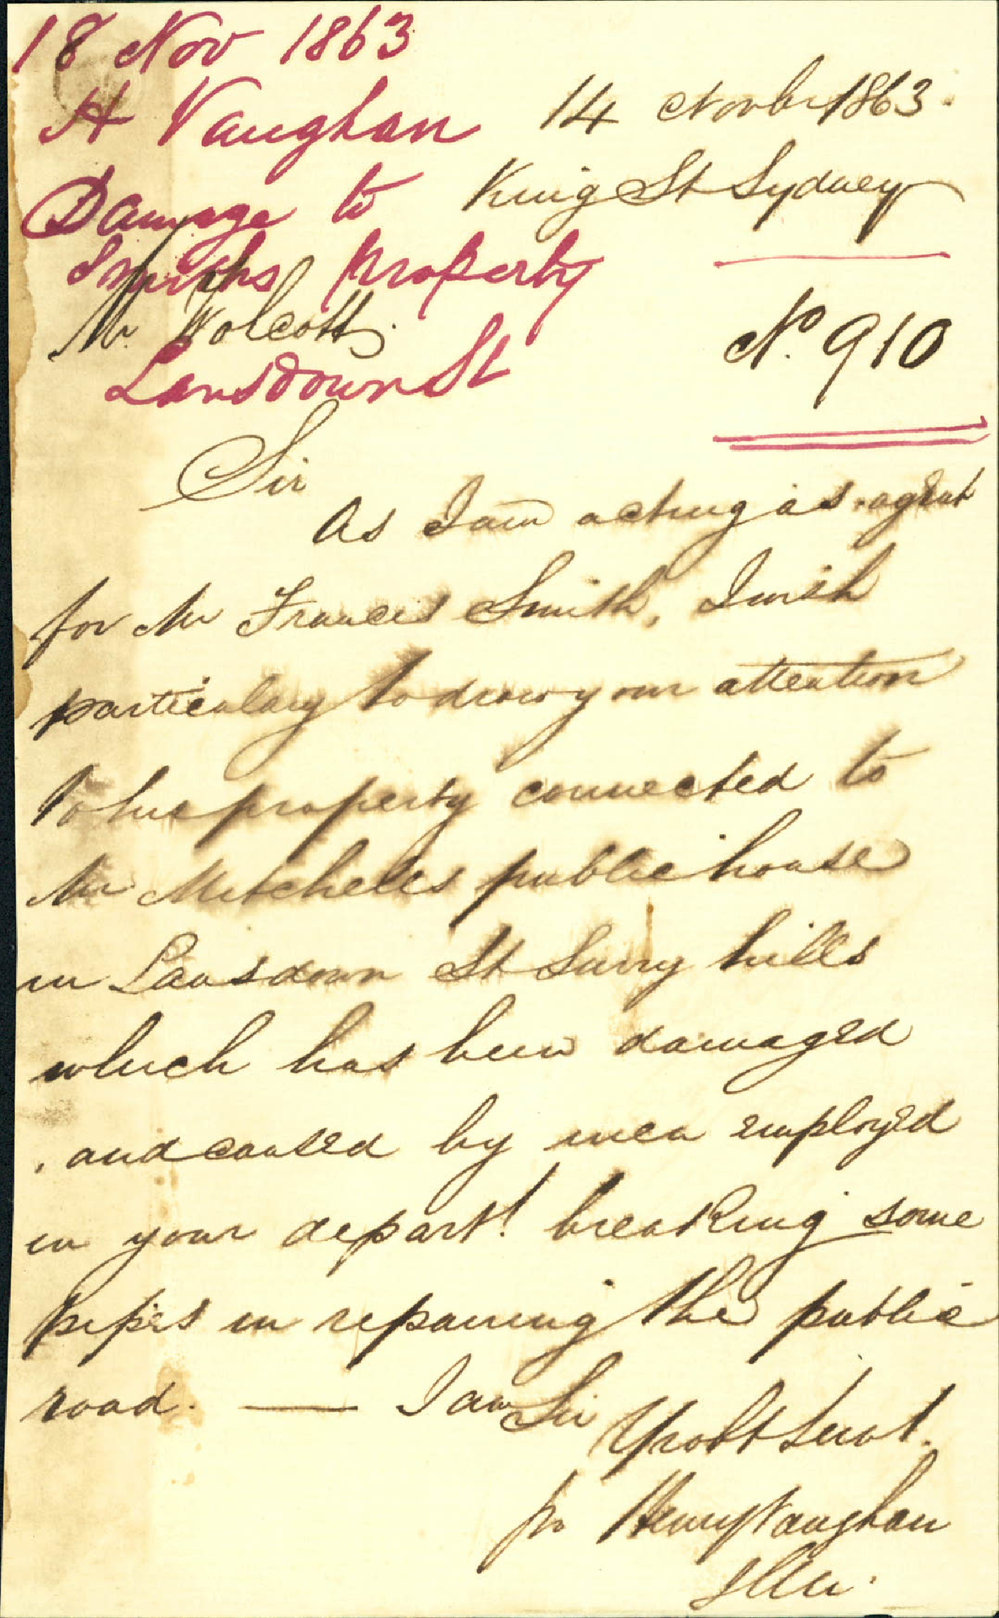 18 Nov 1863
H Vaughan
Damage to
Smiths property
Mr. Wolcott.
Lansdown St
14 Novbr 1863.
King St Sydney
No. 910
Sir
As I am acting as agent
for Mr Frances Smith, I wish
particulary to draw your attention
to his property connected to
Mr Mitchells public house
in Lansdown St Surry hills
which has been damaged
and caused by men employed
in your depart! breaking some
pipes in repairing the public
road. — I am Sir
Yr obt Servt.
pr Henry Vaughan